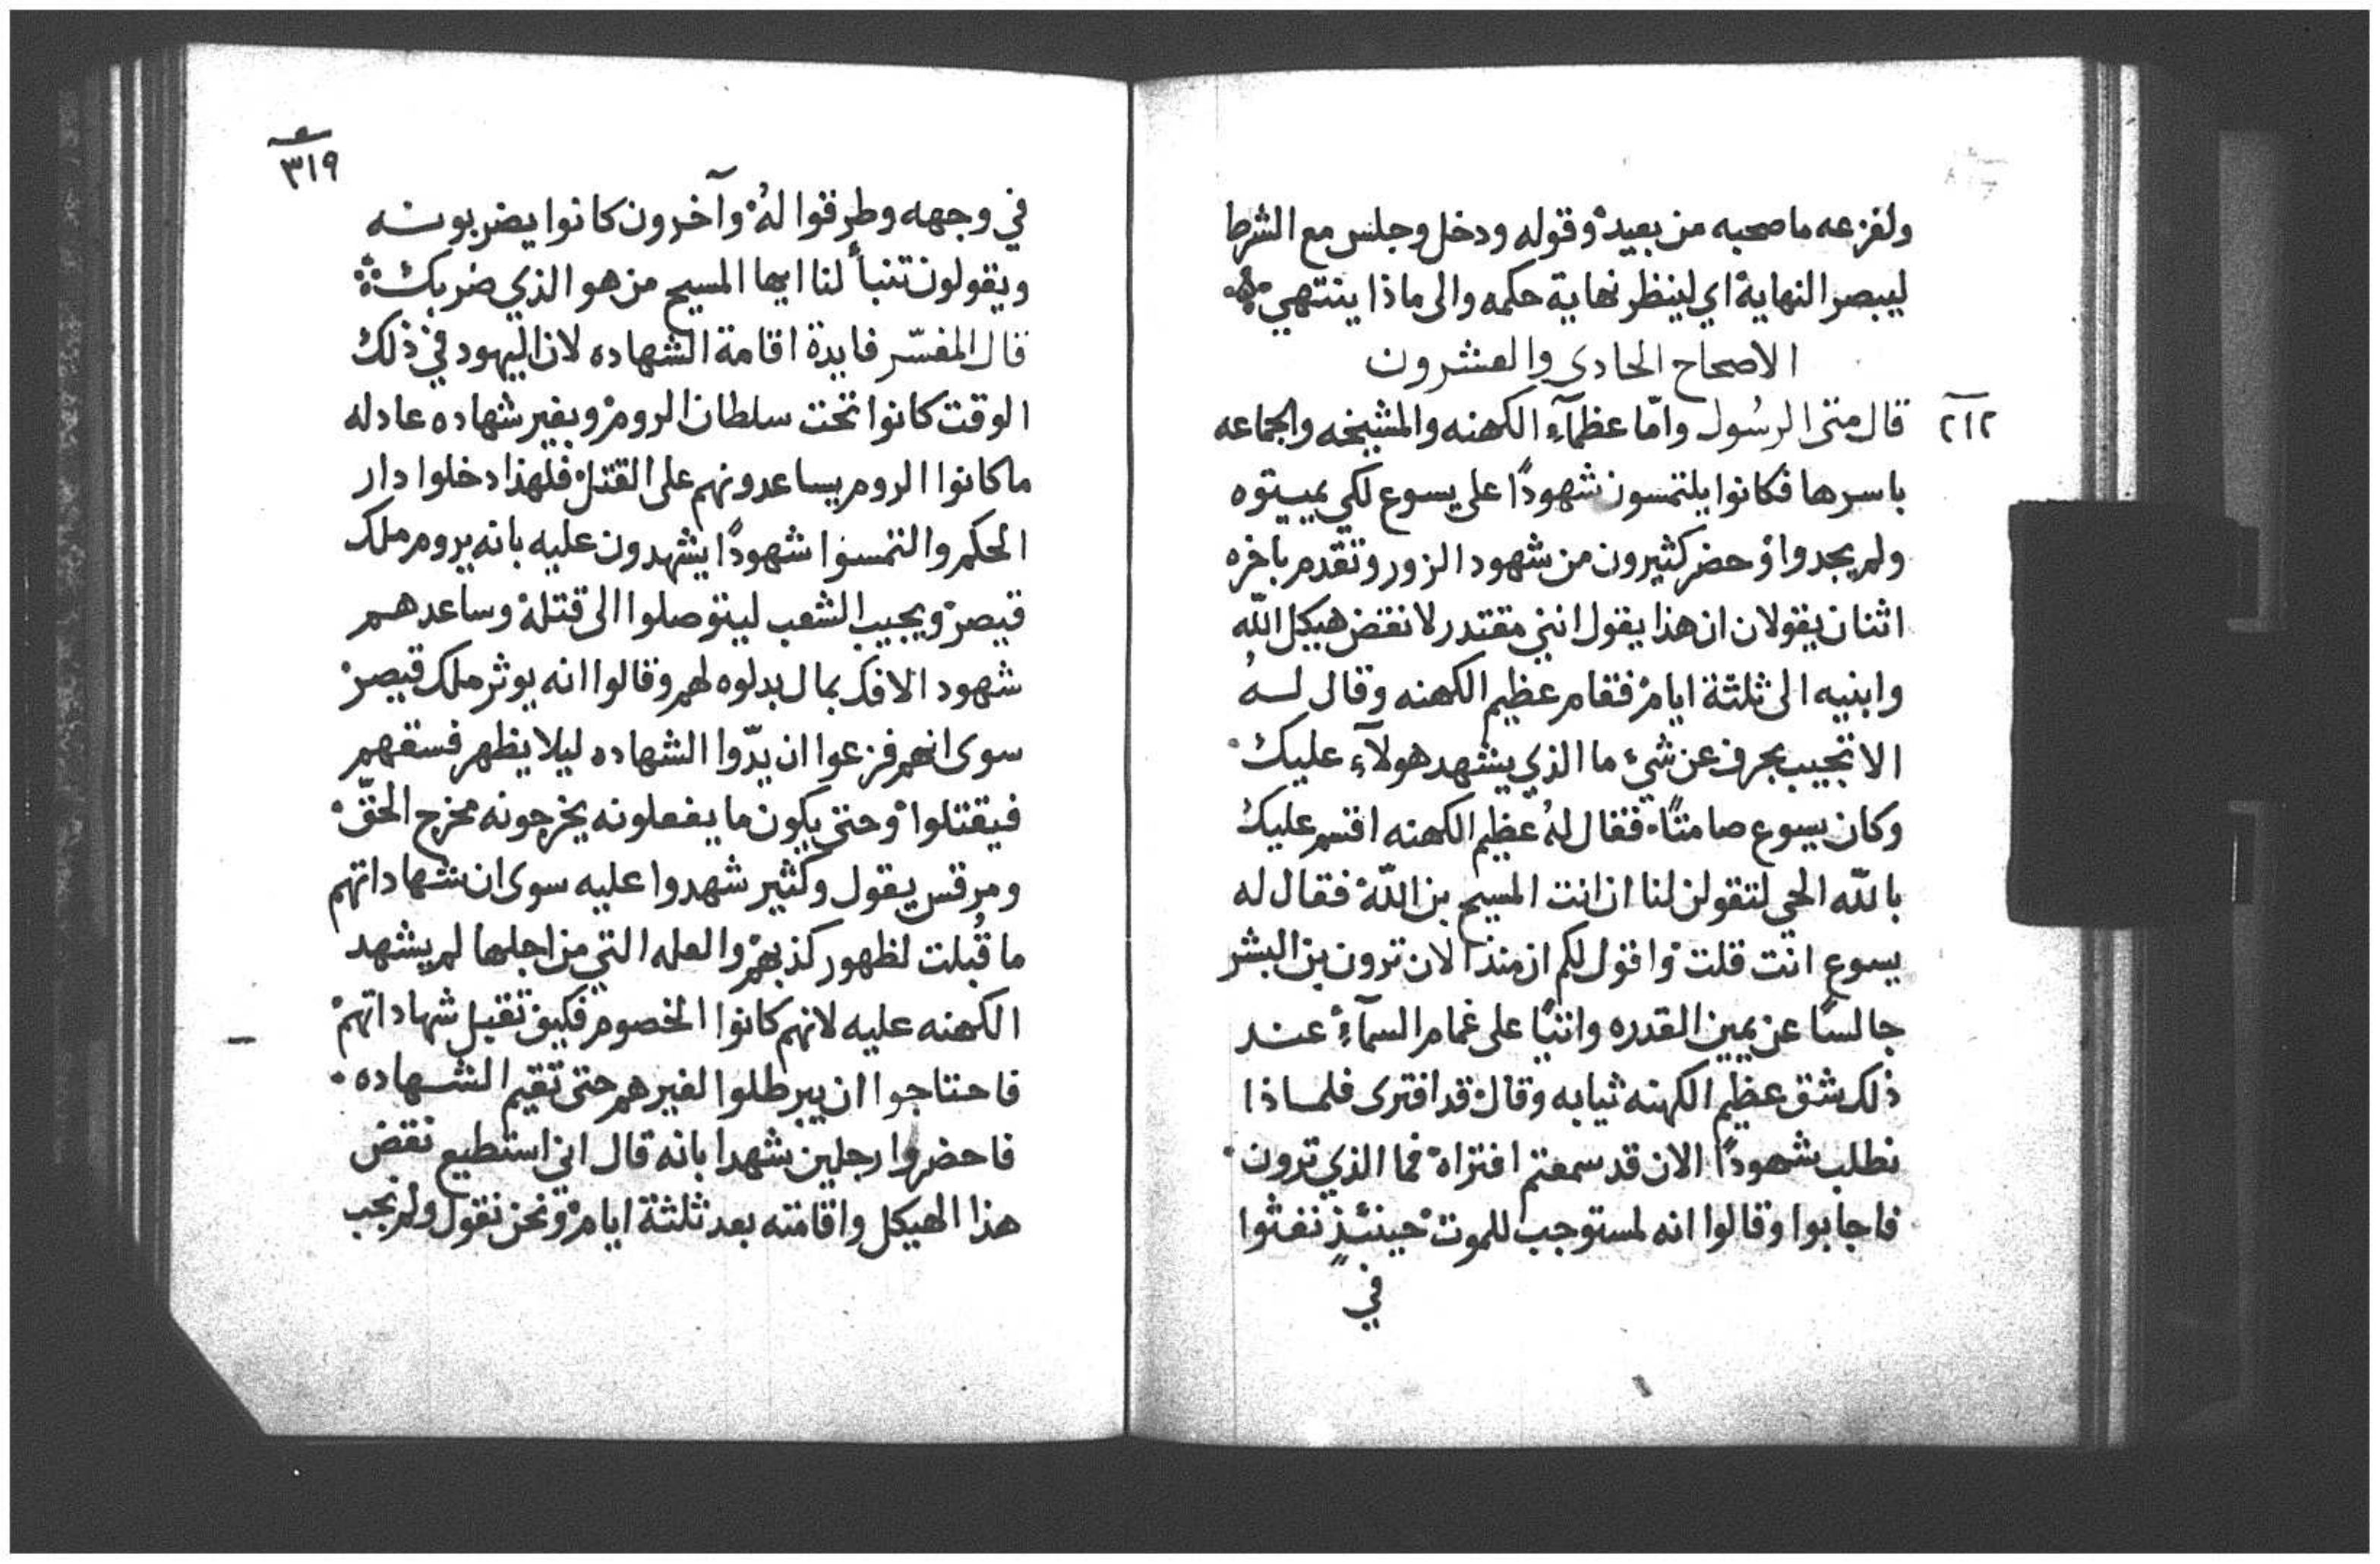 ولفزعه ما صحبه من بعيد وقوله ودخل وجلس مع الشرط
ليبصر النهاية اي لينظر نهاية حكمه والى ماذا ينتهي
الاصحاح الحادى والعشرون
٢١٢
قال متى الرسُول وامّا عظمآء الكهنه والمشيخه والجماعه
باسرها فكانوا يلتمسون شهودًا على يسوع لكي يميتوه
ولم يجدوا وحضر كثيرون من شهود الزور وتقدم باخره
اثنان يقولان ان هذا يقول انني مقتدر لانقض هيكل الله
وابنيه الى ثلثة ايام فقام عظيم الكهنه وقال لـه
الا تجيب بحرف عن شيء ما الذي يشهد هولآء عليك
وكان يسوع صامتًا فقال لهُ عظيم الكهنه اقسم عليك
بالله الحي لتقولن لنا ان انت المسيح بن الله فقال له
يسوع انت قلت واقول لكم ان منذ الان ترون بن البشر
جالسًا عن يمين القدره واتيًا على غمام السمآء عند
ذلك شق عظيم الكهنه ثيابه وقال قد افترى فلماذا
نطلب شهودًا الان قد سمعتم افتراه فما الذي ترون
فاجابوا وقالوا انه لمستوجب للموت حينئذٍ تفثوا
في
٣١٩
في وجهه وطرقوا لهُ وآخرون كانوا يضربونه
ويقولون تنبأ لنا ايها المسيح من هو الذي ضربك
قال المفسّر فايدة اقامة الشهاده لان اليهود في ذلك
الوقت كانوا تحت سلطان الروم وبغير شهاده عادله
ما كانوا الروم يساعدونهم على القتل فلهذا دخلوا دار
الحكم والتمسوا شهودًا يشهدون عليه بانه يروم ملك
قيصر ويجيب الشعب ليتوصلوا الى قتله وساعدهم
شهود الافك بمال بدلوه لهم وقالوا انه يوثر ملك قيصر
سوى انهم فزعوا ان يدّوا الشهاده ليلا يظهر فسقهم
فيقتلوا وحتى يكون ما يفعلونه يخرجونه مخرج الحقّ
ومرقس يقول وكثير شهدوا عليه سوى ان شهاداتهم
ما قُبلت لظهور كذبهم والعله التي من اجلها لم يشهد
الكهنه عليه لانهم كانوا الخصوم فكيف تقبل شهاداتهم
فاحتاجوا ان يبرطلوا لغيرهم حتى تقيم الشهاده
فاحضروا رجلين شهدا بانه قال اني استطيع نقض
هذا الهيكل واقامته بعد ثلثة ايام ونحن نقول ولم نجب